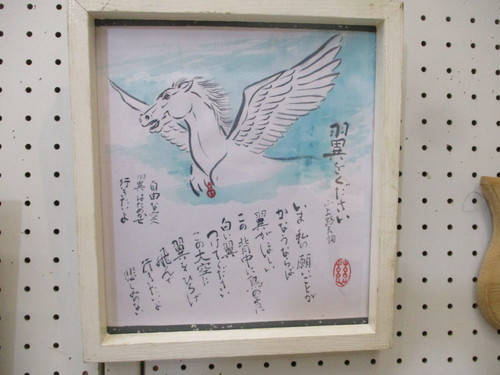 翼をください
いま私の願いごとが
かなうならば
翼がほしい
この背中に鳥のように
白い翼
つけてください
この大空に
翼をひろげ
飛んで
行きたいよ
悲しみのない
自由な空へ
翼はためかせ
行きたいよ